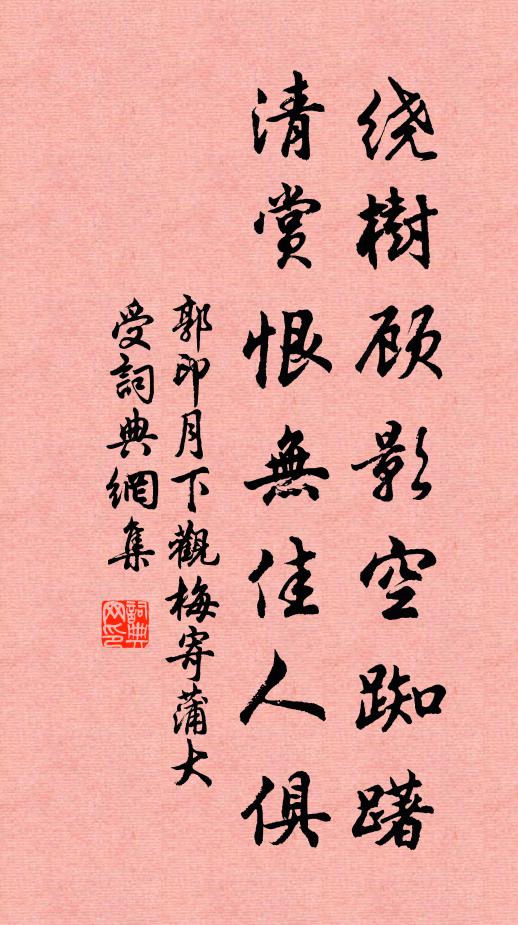 绕樹顾影空踟躇
清赏恨無佳人俱
郭印月下觀梅寄蒲大
受詞典網集
詞典網印